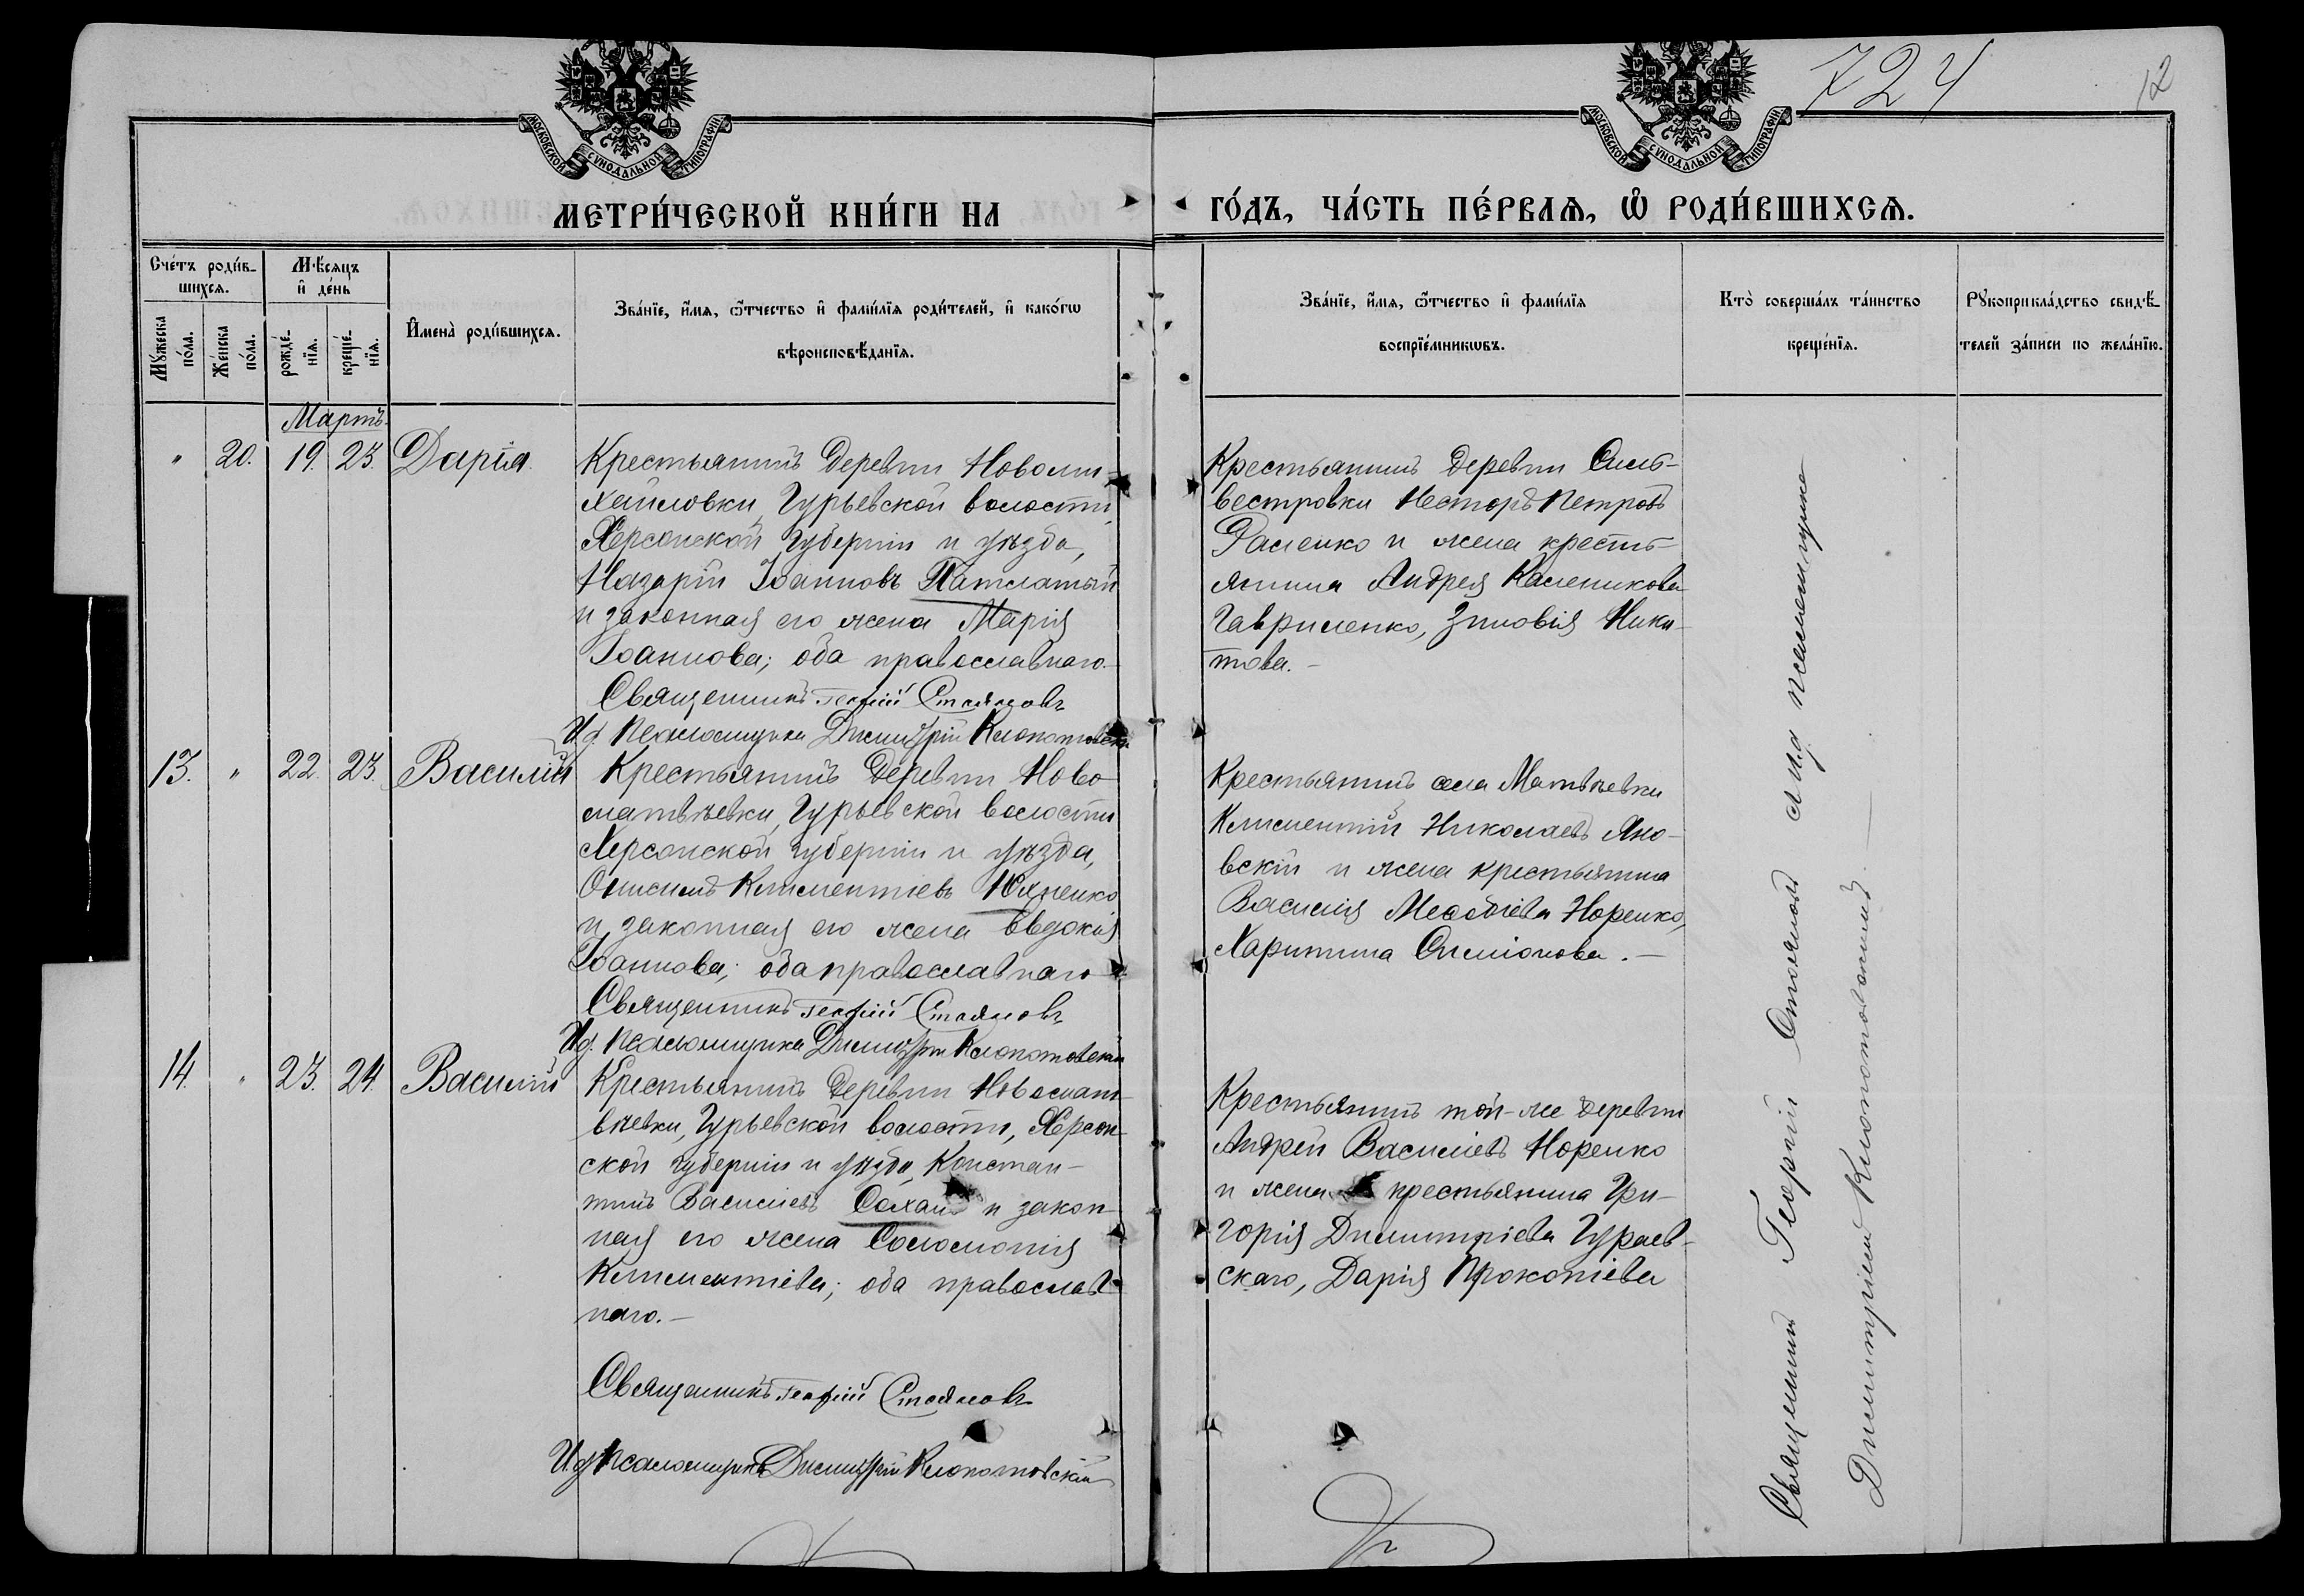 724
12
МОСКОВСКОЙ СѴНОДАЛЬНОЙ ТИПОГРАФІИ
МОСКОВСКОЙ СѴНОДАЛЬНОЙ ТИПОГРАФІИ
МЕТРИ́ЧЕСКОЙ КНИ́ГИ НА
ГО́ДЪ, ЧА́СТЬ ПЕ́РВАѦ, Ѡ҆ РОДИ́ВШИХСѦ.
Сче́тъ роди́в-
шихсѧ.
Мꙋ́жеска по́ла.
Же́нска по́ла.
Мѣ́сѧцъ
и҆ де́нь
рожде́-
нїѧ.
креще́-
нїѧ.
И҆мена̀ роди́вшихсѧ.
Зва́нїе, и҆́мѧ, ѻ҆́тчество и҆ фами́лїѧ роди́телей, и҆ како́гѡ
вѣроисповѣ́данїѧ.
Зва́нїе, и҆́мѧ, ѻ҆́тчество и҆ фами́лїѧ
воспрїе́мникѡвъ.
Кто̀ соверша́лъ та́инство
креще́нїѧ.
Рꙋкоприкла́дство свидѣ́-
телей за́писи по жела́нїю.
Мартъ.
" 20. 19. 23. Дарія.
Крестьянинъ деревни Новоми-
хайловки, Гурьевской волости,
Херсонской губерніи и уѣзда,
Назарій Іоанновъ Патлатый
и законная его жена Марія
Іоаннова; оба православнаго.
Священникъ Георгій Стояновъ
И.д. Псаломщика Димитрій Клопотовскій
Крестьянинъ деревни Силь-
вестровки Несторъ Петровъ
и жена кресть-
янина Андрея Каленикова
Гавриленко, Зиновія Ники-
това.-
13. " 22. 23. Василій
Крестьянинъ деревни Ново-
матвѣевки, Гурьевской волости
Херсонской губерніи и уѣзда,
Онисимъ Климентіевъ Юхненко
и законная его жена Евдокія
Іоаннова; оба православнаго
Священникъ Георгій Стояновъ
И.д. Псаломщика Димитрій Клопотовскій
Крестьянинъ села Матвѣевки
Климентій Николаевъ Яно-
вскій и жена крестьянина
Василія Меѳодіева Норенко,
Харитина Симіонова.-
14. " 23. 24. Василій
Крестьянинъ деревни Новомат-
вѣевки, Гурьевской волости, Херсон-
ской губерніи и уѣзда, Констан-
тинъ Василіевъ Сахан и закон-
ная его жена Соломонія
Климентіева; оба православ-
наго.-
Священникъ Георгій Стояновъ
И.д. Псаломщика Димитрій Клопотовскій
Крестьянинъ той-же деревни
Андрей Василіевъ Норенко
и жена крестьянина Гри-
горія Димитріева Гураев-
скаго, Дарія Прокопіева
Священникъ Георгій Стояновъ съ и.д. псаломщика
Димитріемъ Клопотовскимъ.